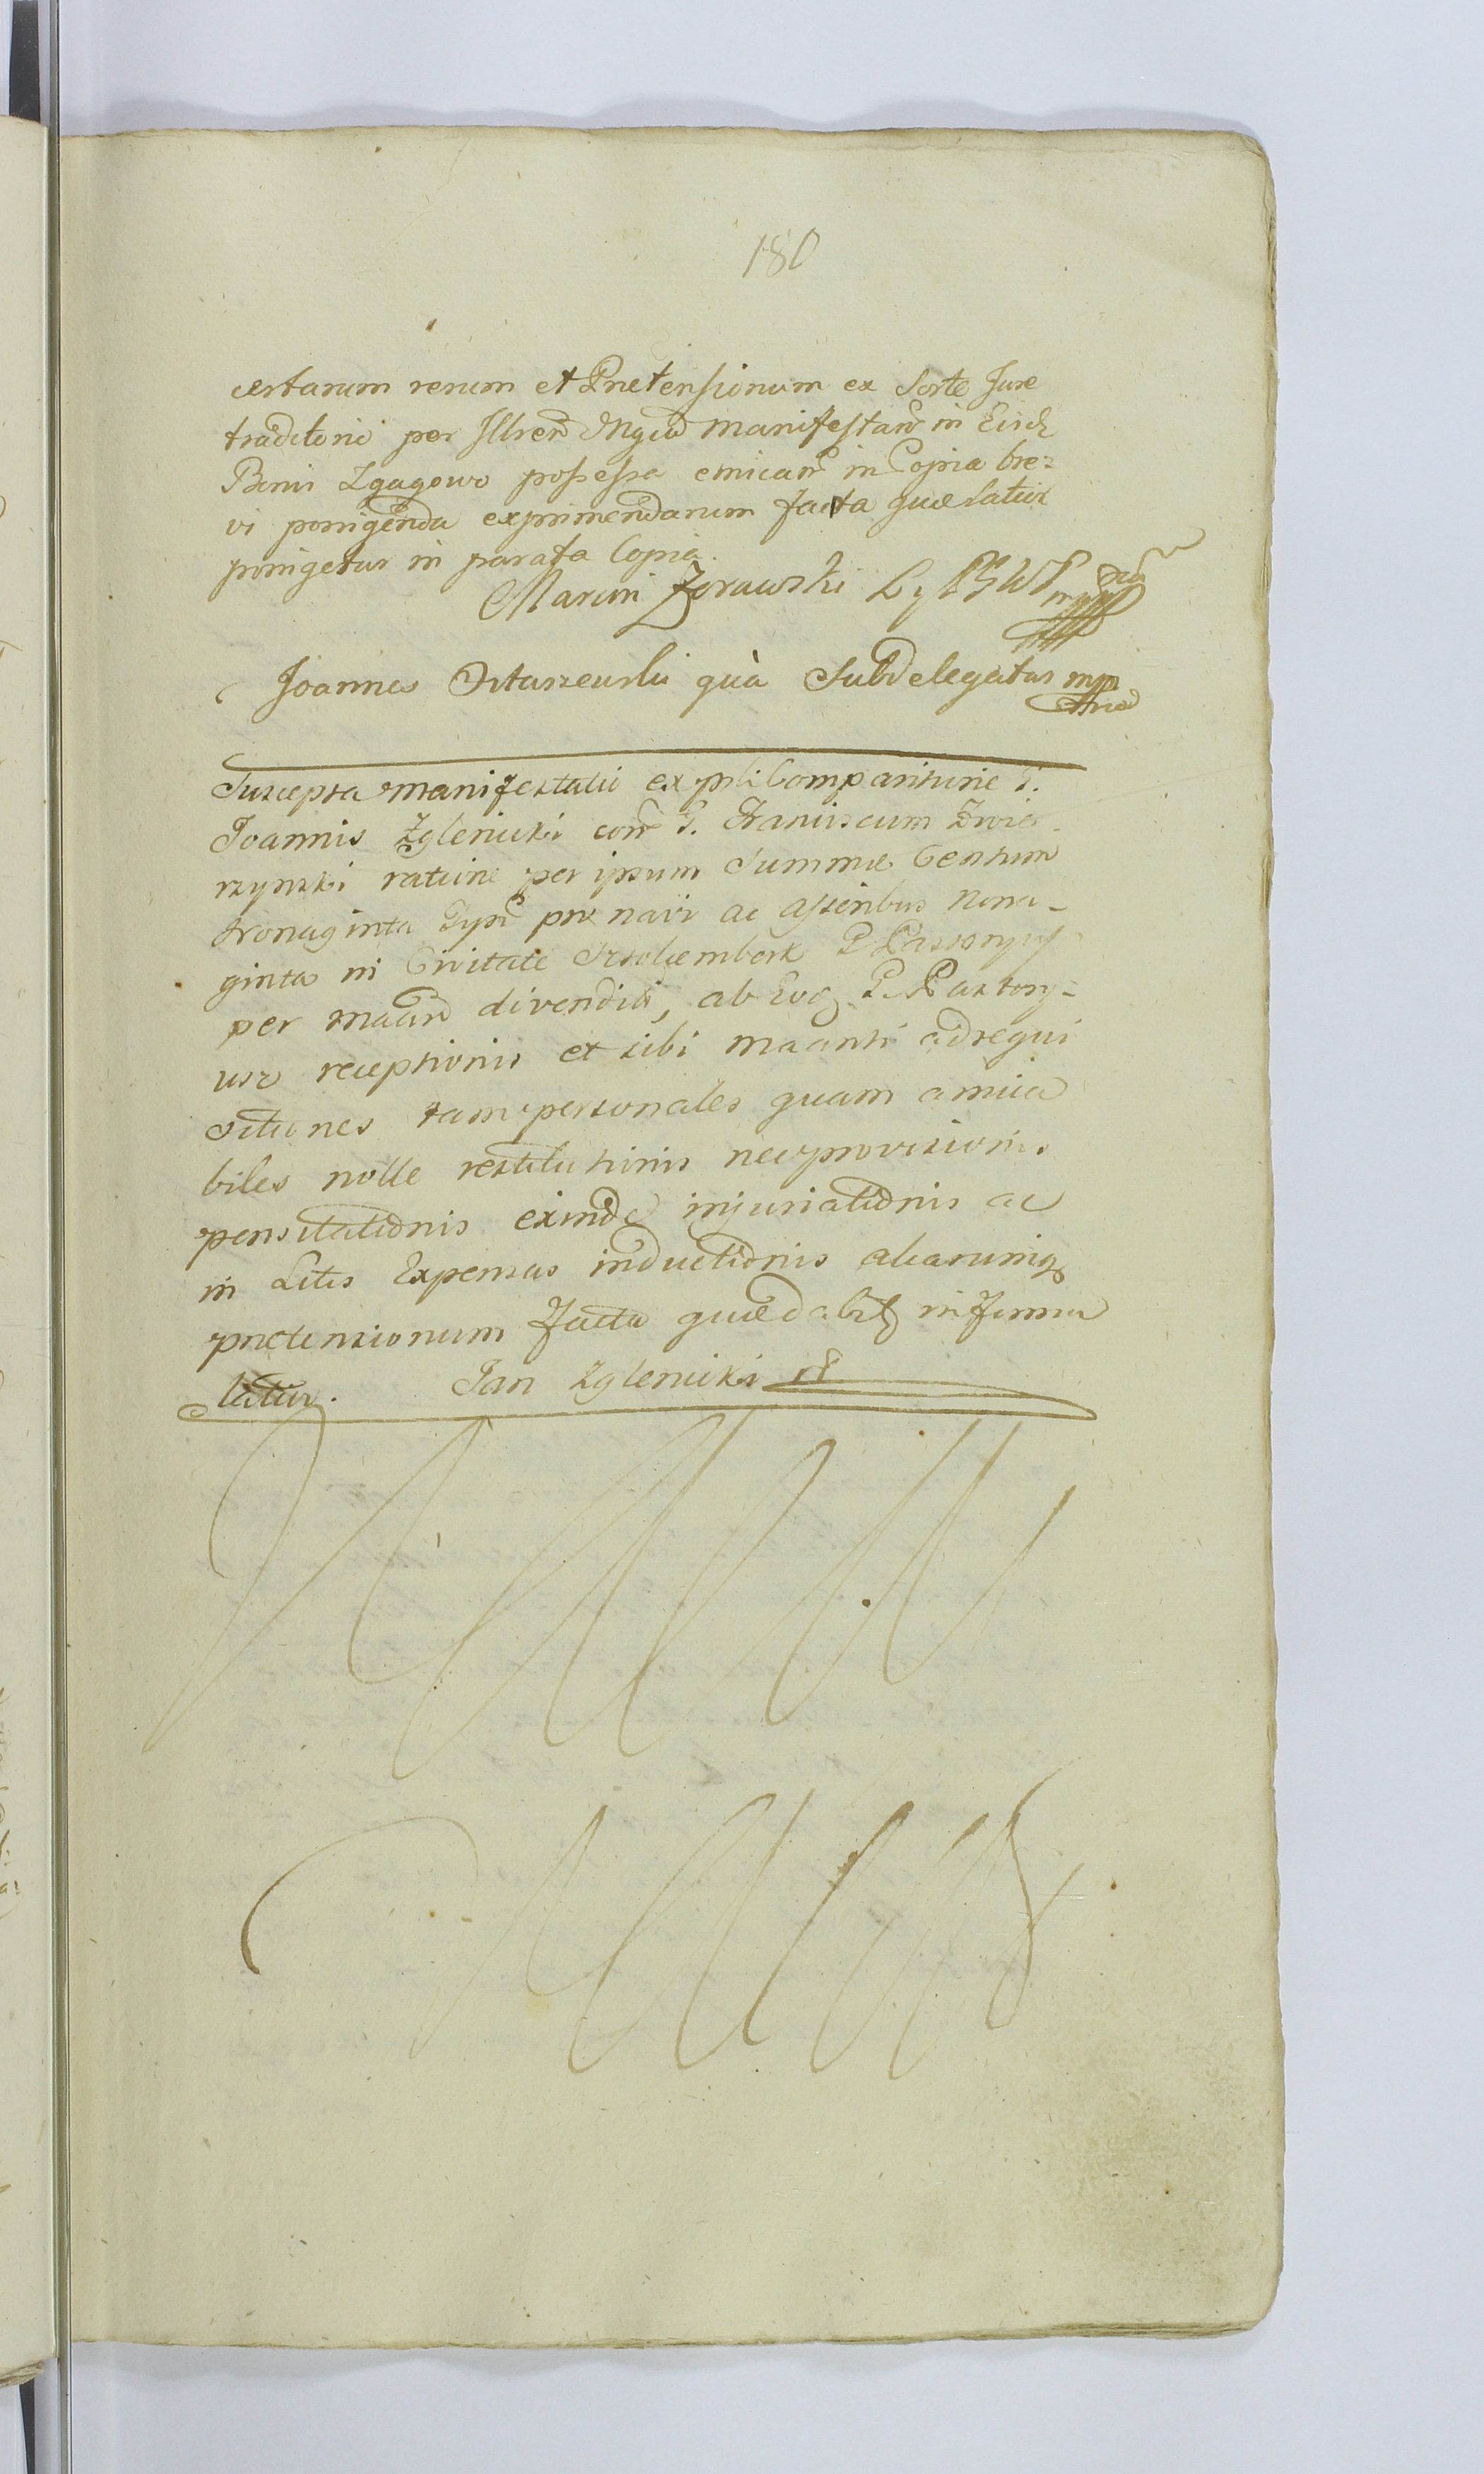 180
certarum rerum et Prætensionum ex Sorte Jure
traditorio per Illren Mgcu manifestanē in Eisdē
Bonis Zgagowo possessa emican in Copia bre=
vi porrigenda exprimendarum facta quæ latius
porrigetur in parata Copia.
Marcin Zorawski
Joannes Ostaszewski quà Subdelegatus mpp
Suscepta manifestatio ex psli Comparitione P.
Joannis Zglenicki con P. Franciscum Zwie-
rzynski ratione per ipsum Summæ Centum
Nonaginta Typs pro navi ac asseribus Nona-
ginta in Civitate Sztolcembork P.
per maan divenditis, ab Eodē P. Pastory-
usz receptionis et sibi maanti ad requi
sitiones tam personales quam amica
biles nolle restitutionis nec provisionis
pensitationis exinde injuriationis ac
in Litis Expensas inductionis aliarumq
prætensionum facta quæ dabitē in forma
latius. Jan Zglenicki